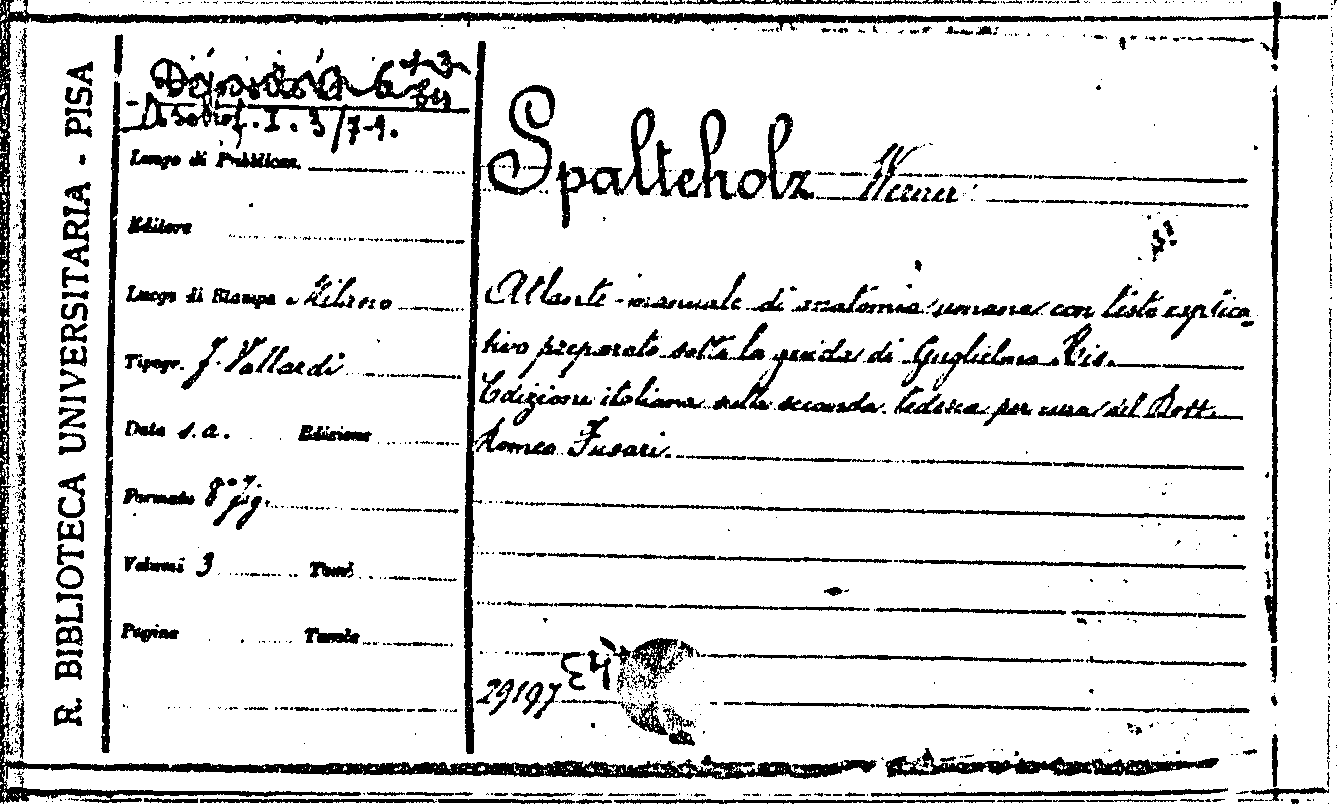 R. BIBLIOTECA UNIVERSITARIA - PISA
I. 3/7-9.
Luogo di Pubblicaz.
Editore
Luogo di Stampa Milano
Tipogr. F. Vallardi
Data s.a. Edizione
Formato 8° fig.
Volumi 3 Tomi
Pagine Tavole
Spalteholz Werner
Atlante-manuale di anatomia umana con testo esplica-
tivo preparato sotto la guida di Guglielmo His.
Edizione italiana sulla seconda tedesca per cura del Dott.
Romeo Fusari.
29197